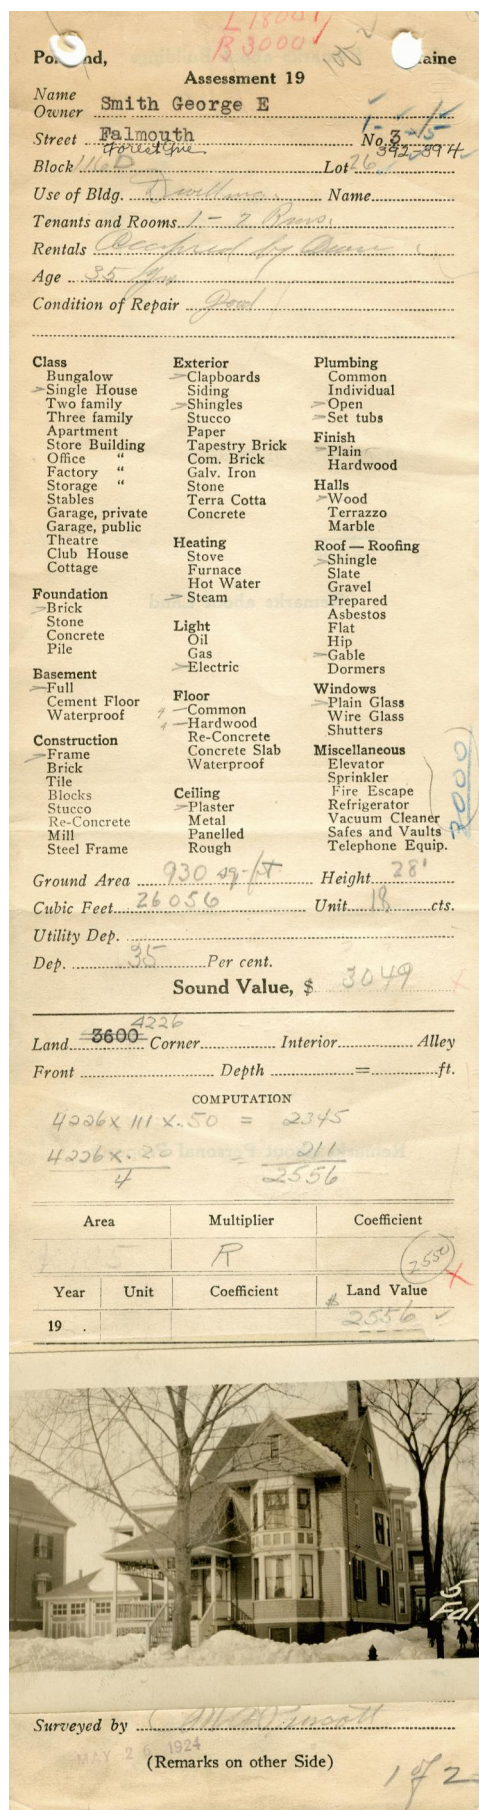 L 1800
B 3000
Portland, Maine
Assessment 19
Name
Owner Smith George E
Street Falmouth No. 3-15
Forest Ave 392-394
Block 116D Lot 26
Use of Bldg. Dwelling. Name
Tenants and Rooms 1 - 7 Rms.
Rentals Occupied by Owner
Age 35 yrs
Condition of Repair Good
Class
Bungalow
Single House
Two family
Three family
Apartment
Store Building
Office "
Factory "
Storage "
Stables
Garage, private
Garage, public
Theatre
Club House
Cottage
Foundation
Brick
Stone
Concrete
Pile
Basement
Full
Cement Floor
Waterproof
Construction
Frame
Brick
Tile
Blocks
Stucco
Re-Concrete
Mill
Steel Frame
Exterior
Clapboards
Siding
Shingles
Stucco
Paper
Tapestry Brick
Com. Brick
Galv. Iron
Stone
Terra Cotta
Concrete
Heating
Stove
Furnace
Hot Water
Steam
Light
Oil
Gas
Electric
Floor
Common
Hardwood
Re-Concrete
Concrete Slab
Waterproof
Ceiling
Plaster
Metal
Panelled
Rough
Plumbing
Common
Individual
Open
Set tubs
Finish
Plain
Hardwood
Halls
Wood
Terrazzo
Marble
Roof — Roofing
Shingle
Slate
Gravel
Prepared
Asbestos
Flat
Hip
Gable
Dormers
Windows
Plain Glass
Wire Glass
Shutters
Miscellaneous
Elevator
Sprinkler
Fire Escape
Refrigerator
Vacuum Cleaner
Safes and Vaults
Telephone Equip.
3000
Ground Area 930 sq-ft Height 28'
Cubic Feet 26056 Unit 18 cts.
Utility Dep.
Dep. 35 Per cent.
Sound Value, $ 3049
4226
Land 3600 Corner Interior Alley
Front Depth = ft.
COMPUTATION
4226 x 111 x .50 = 2345
4226 x .20 = 211
4 2556
Area Multiplier Coefficient
R
2550
Year Unit Coefficient Land Value
19 . $ 2556
15
Fal.
Surveyed by
MAY 26 1924
(Remarks on other Side)
1 of 2